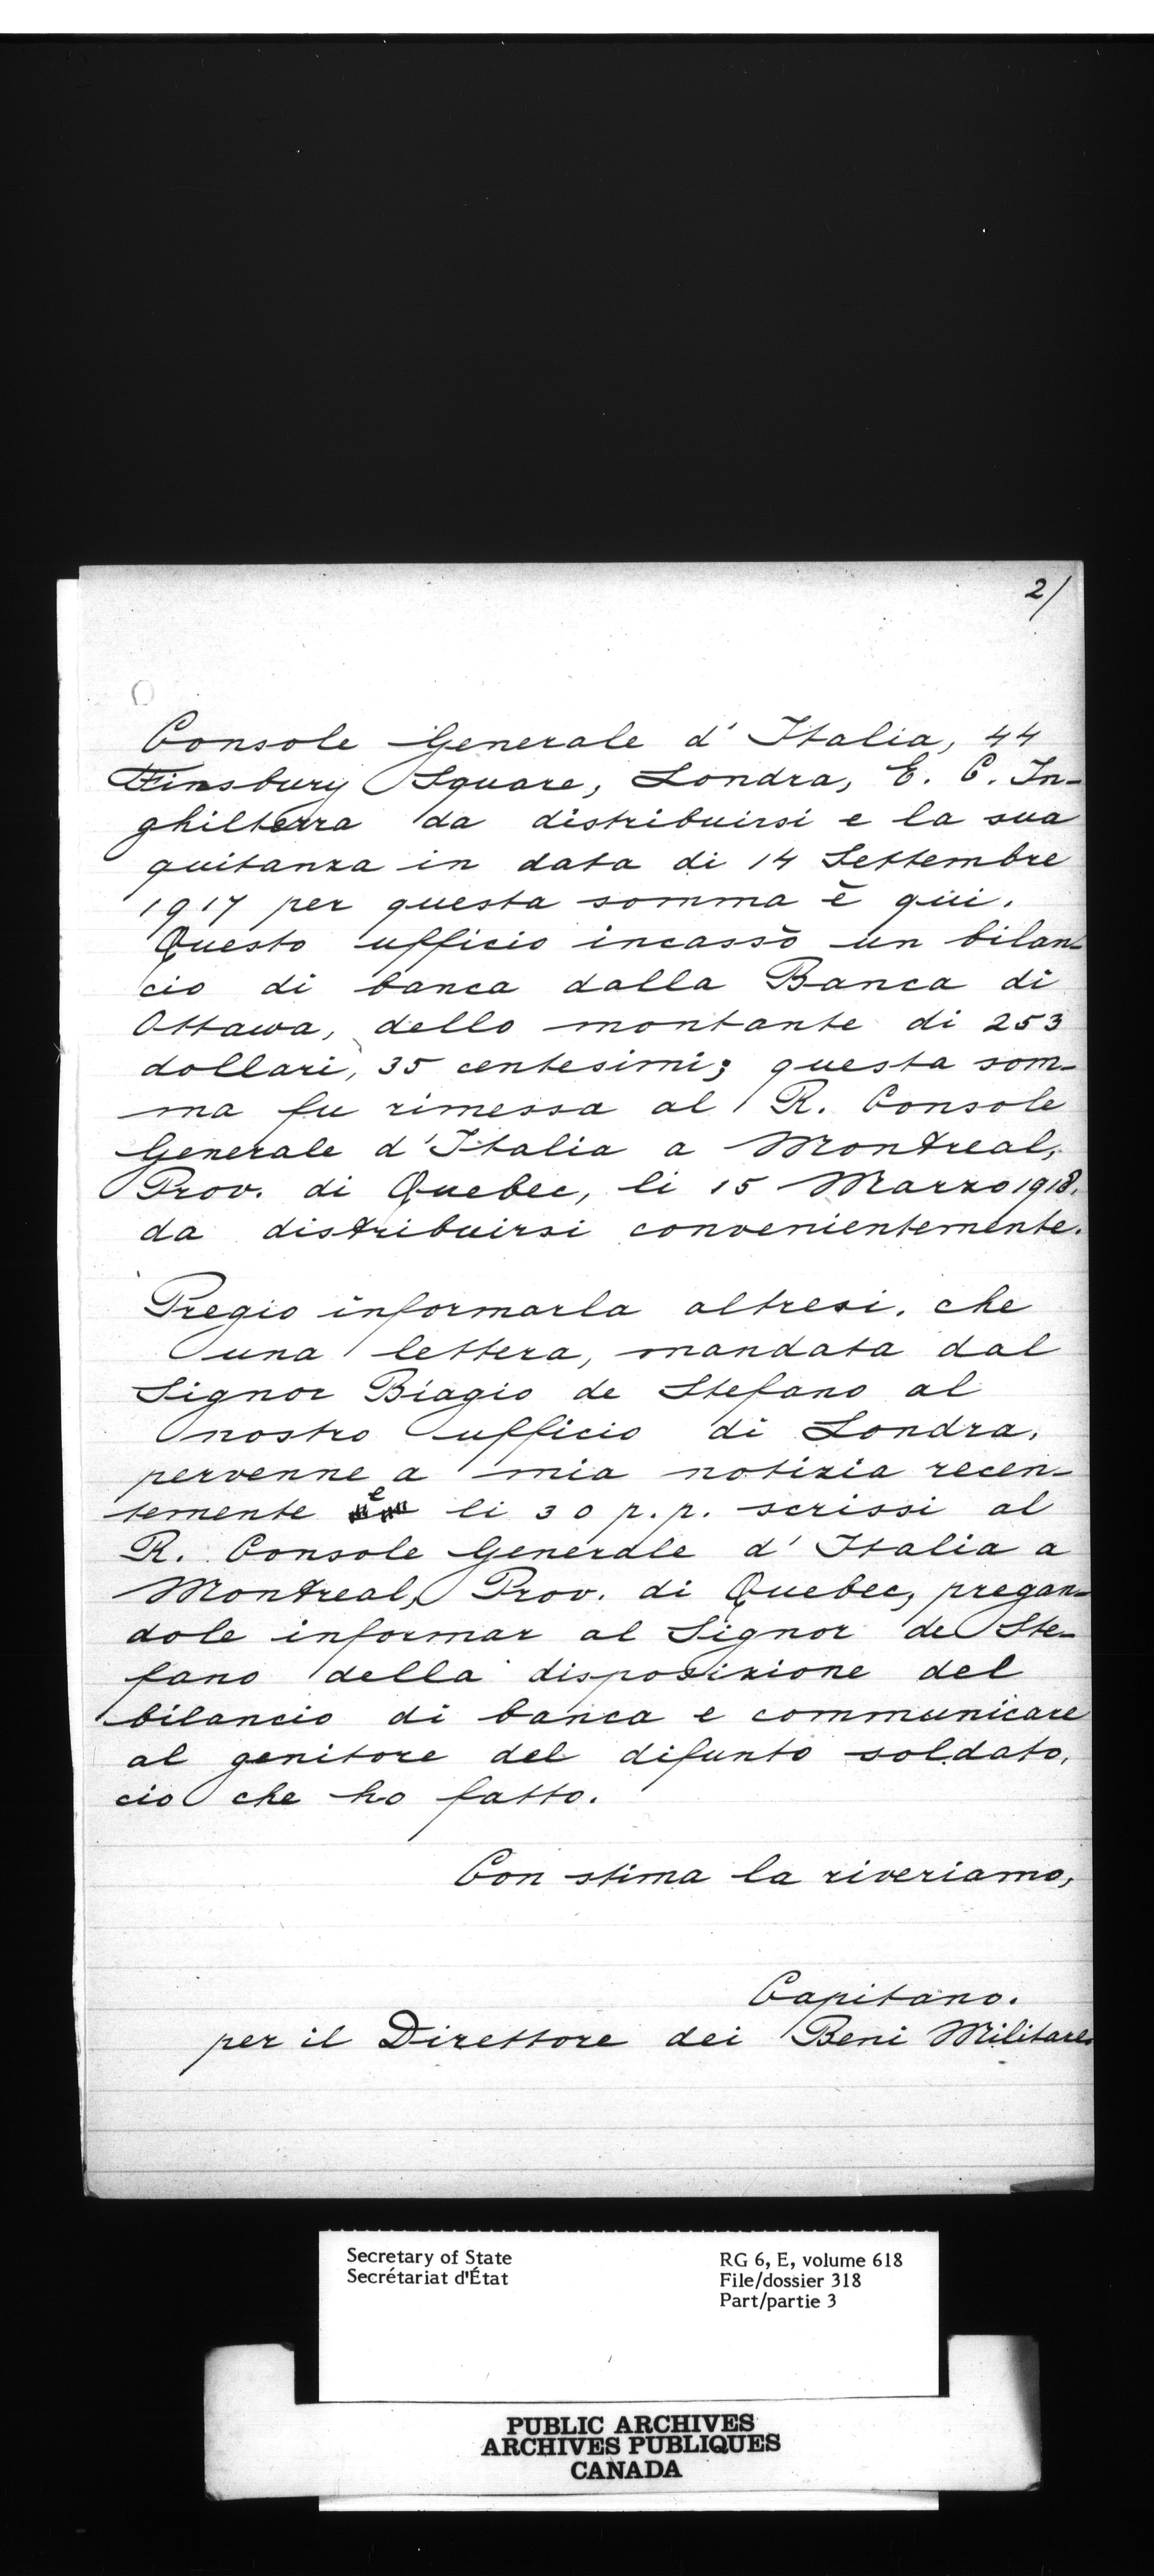 2/
Console Generale d'Italia, 44
Finsbury Square, Londra, E. C. In-
ghilterra da distribuirsi e la sua
quitanza in data di 14 Settembre
1917 per questa somma è qui.
Questo ufficio incassò un bilan-
cio di banca dalla Banca di
Ottawa, dello montante di 253
dollari, 35 centesimi; questa som-
ma fu rimessa al R. Console
Generale d'Italia a Montreal,
Prov. di Quebec, li 15 Marzo 1918.
da distribuirsi convenientemente.
Pregio informarla altresi, che
una lettera, mandata dal
Signor Biagio de Stefano al
nostro ufficio di Londra,
pervenne a mia notizia recen-
temente e li 30 p.p. scrissi al
R. Console Generale d'Italia a
Montreal, Prov. di Quebec, pregan-
dole informar al Signor de Ste-
fano della disposizione del
bilancio di banca e communicare
al genitore del difunto soldato,
cio che ho fatto.
Con stima la riveriamo,
Capitano.
per il Direttore dei Beni Militare.
Secretary of State
Secrétariat d'État
RG 6, E, volume 618
File/dossier 318
Part/partie 3
PUBLIC ARCHIVES
ARCHIVES PUBLIQUES
CANADA